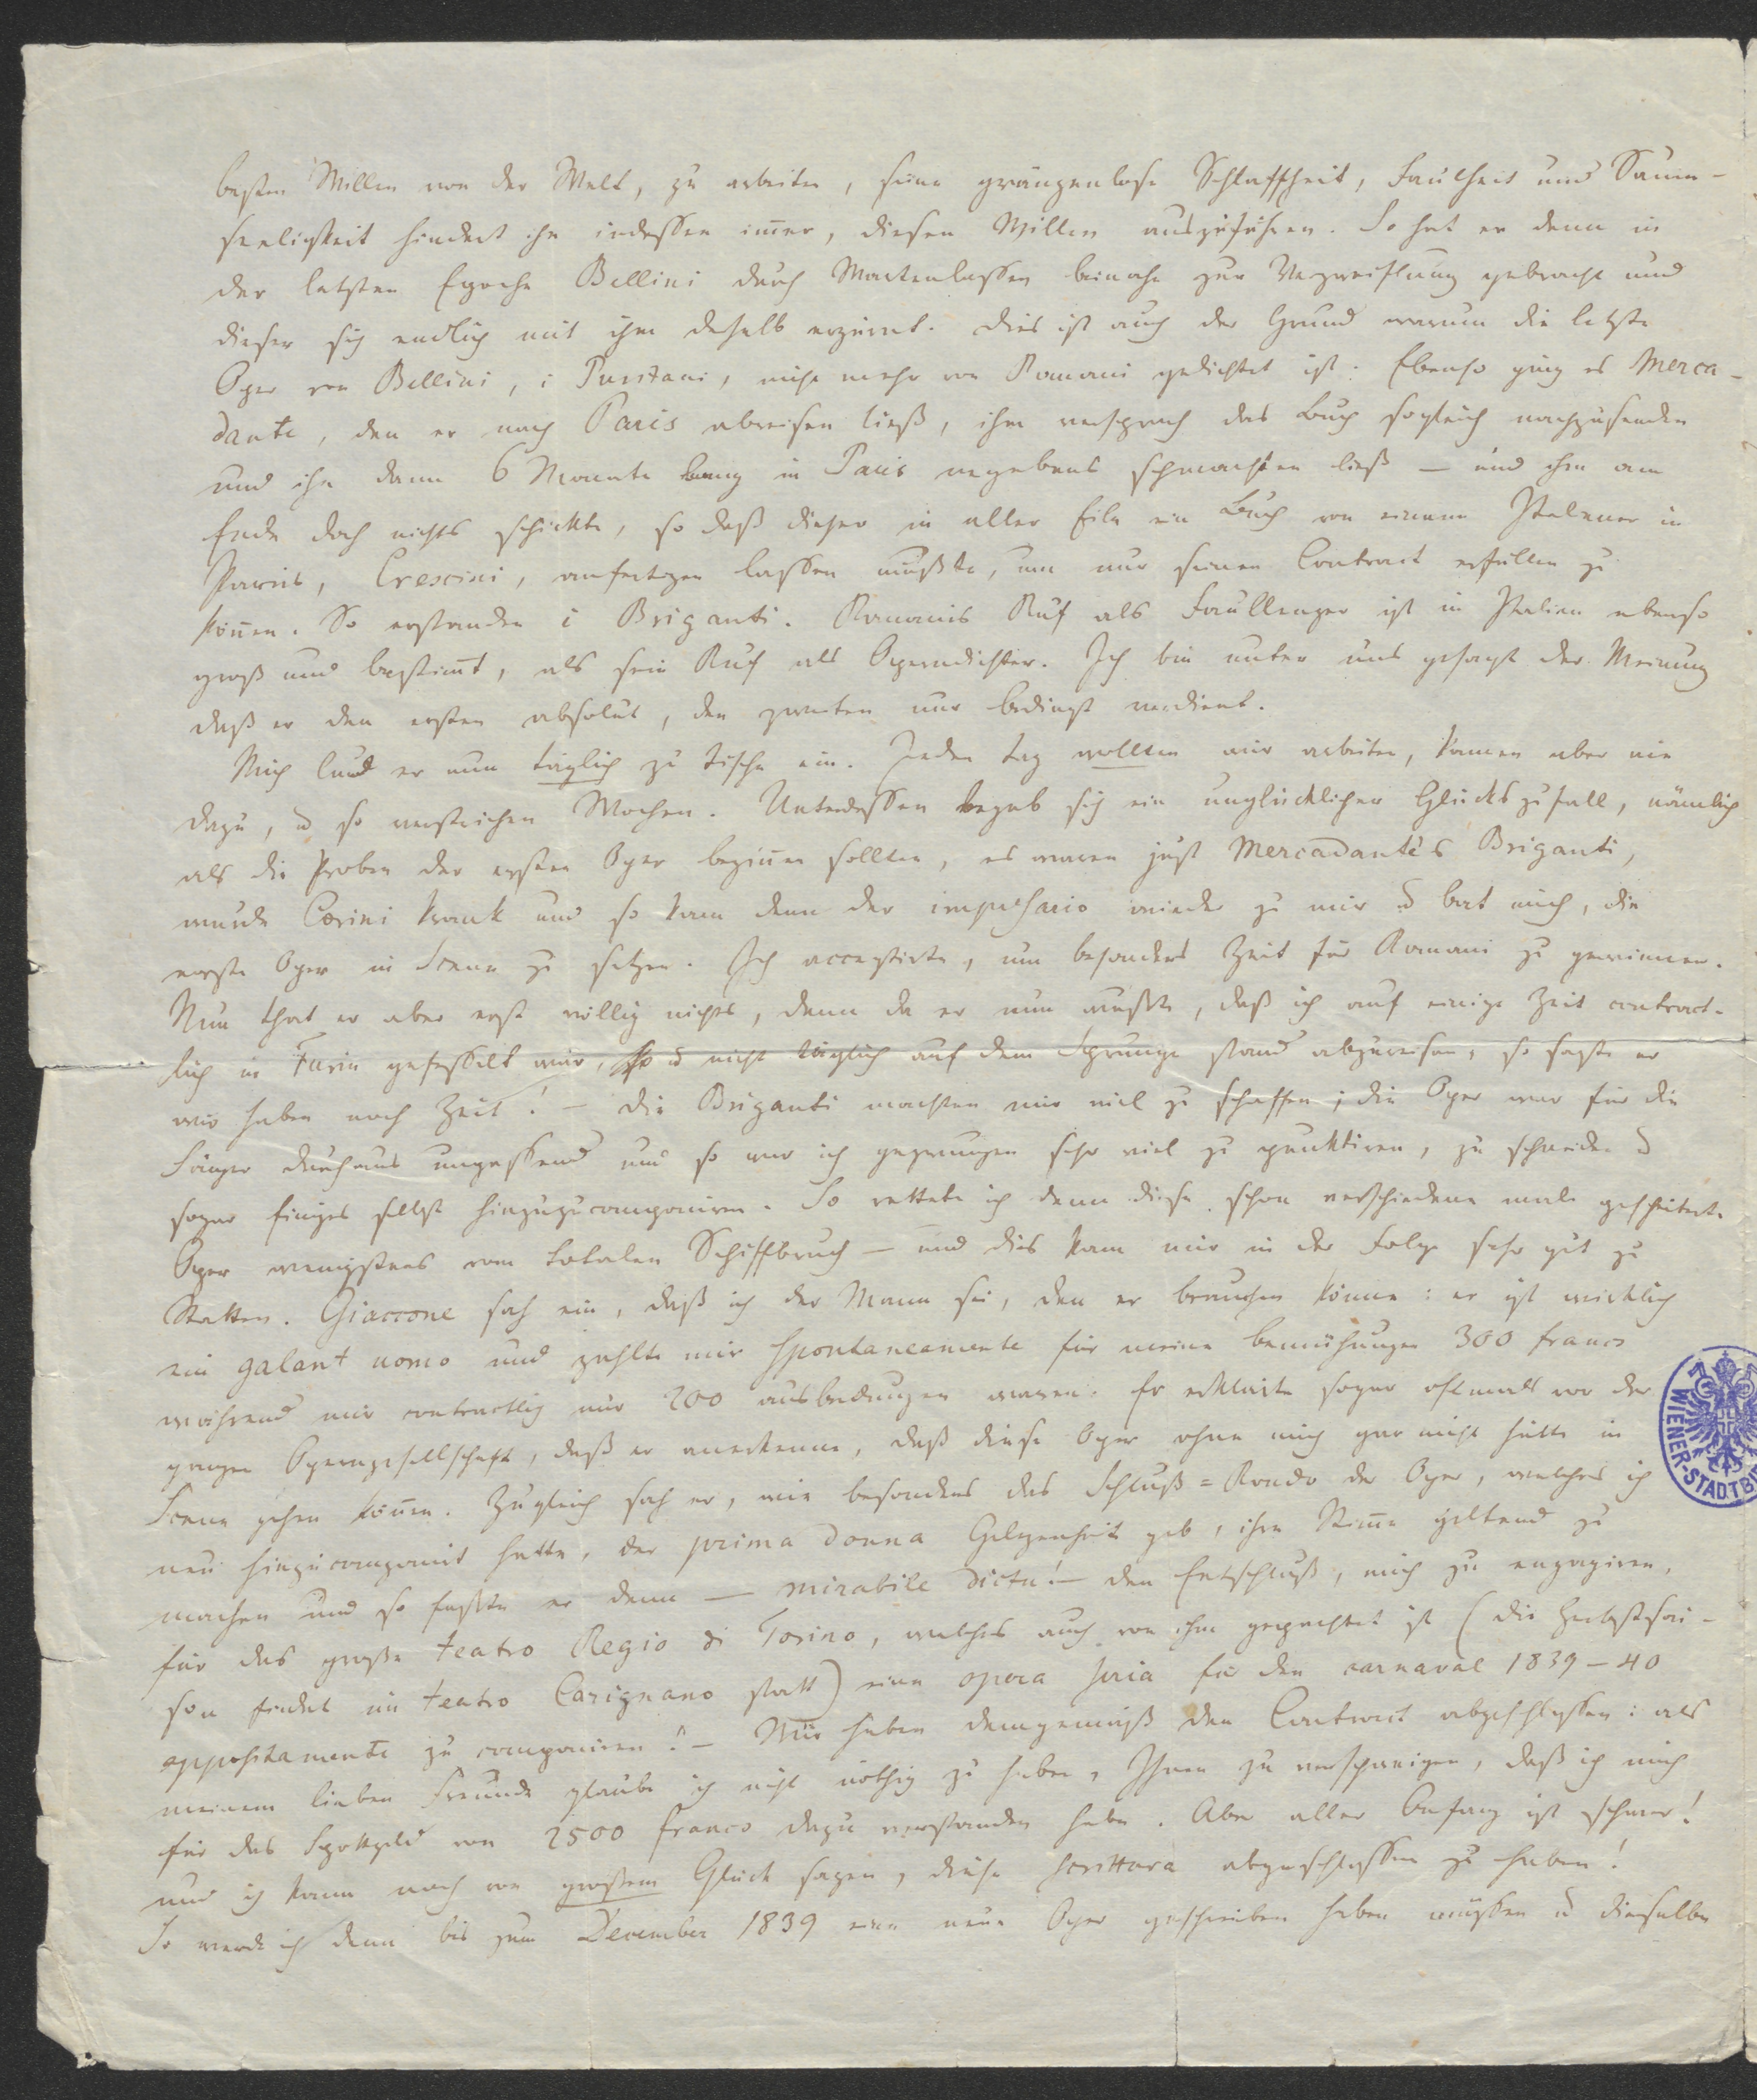 besten Willen von der Welt, zu arbeiten, seine gränzenlose Schlaffheit, Faulheit und Saum-
seeligkeit hindert ihn indessen im̄er, diesen Willen auszuführen. So hat er denn in
der letzten Epoche Bellini durch Wartenlassen beinahe zur Verzweiflung gebracht und
dieser sich endlich mit ihm deshalb erzürnt. Dies ist auch der Grund warum die letzte
Oper von Bellini, i Puritani, nicht mehr von Romani gedichtet ist. Ebenso ging es Merca-
dante, den er nach Paris abreisen ließ, ihm versprach das Buch sogleich nachzusenden
und ihn dann 6 Monate lang in Paris vergebens schmachten ließ – und ihm am
Ende doch nichts schickte, so daß dieser in aller Eile ein Buch von einem Italiener in
Paris, Crescini, anfertigen lassen mußte, um nur seinen Contract erfüllen zu
kön̄en. So erstanden i Briganti. Romanis Ruf als Faullenzer ist in Italien ebenso
groß und bestim̄t, als sein Ruf als Operndichter. Ich bin unter uns gesagt der Meinung
daß er den ersten absolut, den zweiten nur bedingt verdient.
Mich lud er nun täglich zu Tische ein. Jeden Tag wollten wir arbeiten, kamen aber nie
dazu, u so verstrichen Wochen. Unterdessen begab sich ein unglücklicher Glückszufall, nämlich
als die Proben der ersten Oper begin̄en sollten, es waren just Mercadante's Briganti,
wurde Corini krank und so kam denn der impresario wieder zu mir u bat mich, die
erste Oper in Scene zu setzen. Ich acceptirte, um besonders Zeit für Romani zu gewinnen.
Nun that er aber erst völlig nichts, denn da er nun wußte, daß ich auf einige Zeit contract-
lich in Turin gefesselt war, u nicht täglich auf dem Sprunge stand abzureisen, so sagte er
wir haben noch Zeit! – Die Briganti machten mir viel zu schaffen; die Oper war für die
Sänger durchaus unpassend und so war ich gezwungen sehr viel zu punktiren, zu schneiden u
sogar Einiges selbst hinzuzucomponiren. So rettete ich denn diese schon verschiedene male gescheiterte
Oper wenigstens vom totalen Schiffbruch – und dies kam mir in der Folge sehr gut zu
Statten. Giaccone sah ein, daß ich der Mann sei, den er brauchen könne: er ist wirklich
ein galant uomo und zahlte mir spontaneamente für meine Bemühungen 300 francs
während mir contractlich nur 200 ausbedungen waren. Er erklärte sogar oftmals vor der
ganzen Operngesellschaft, daß er anerkenne, daß diese Oper ohne mich gar nicht hätte in
Scene gehen kön̄en. Zugleich sah er, wie besonders das Schluß=Rondo der Oper, welches ich
neu hinzucomponirt hatte, der prima donna Gelegenheit gab, ihre Stim̄e geltend zu
machen und so faßte er denn – mirabile dictu! – den Entschluß, mich zu engagiren,
für das große teatro Regio di Torino, welches auch von ihm gepachtet ist (die Herbstsai-
son findet im teatro Carignano statt) eine opera seria für den carnaval 1839–40
appositamente zu componiren! – Wir haben demgemäß den Contract abgeschlossen: als
meinem lieben Freunde glaube ich nicht nöthig zu haben, Ihnen zu verschweigen, daß ich mich
für das Spottgeld von 2500 francs dazu verstanden habe. Aber aller Anfang ist schwer!
und ich kann noch von großem Glück sagen, diese scrittura abgeschlossen zu haben!
So werde ich denn bis zum December 1839 eine neue Oper geschrieben haben müssen u dieselbe
WIENER-STADTBI